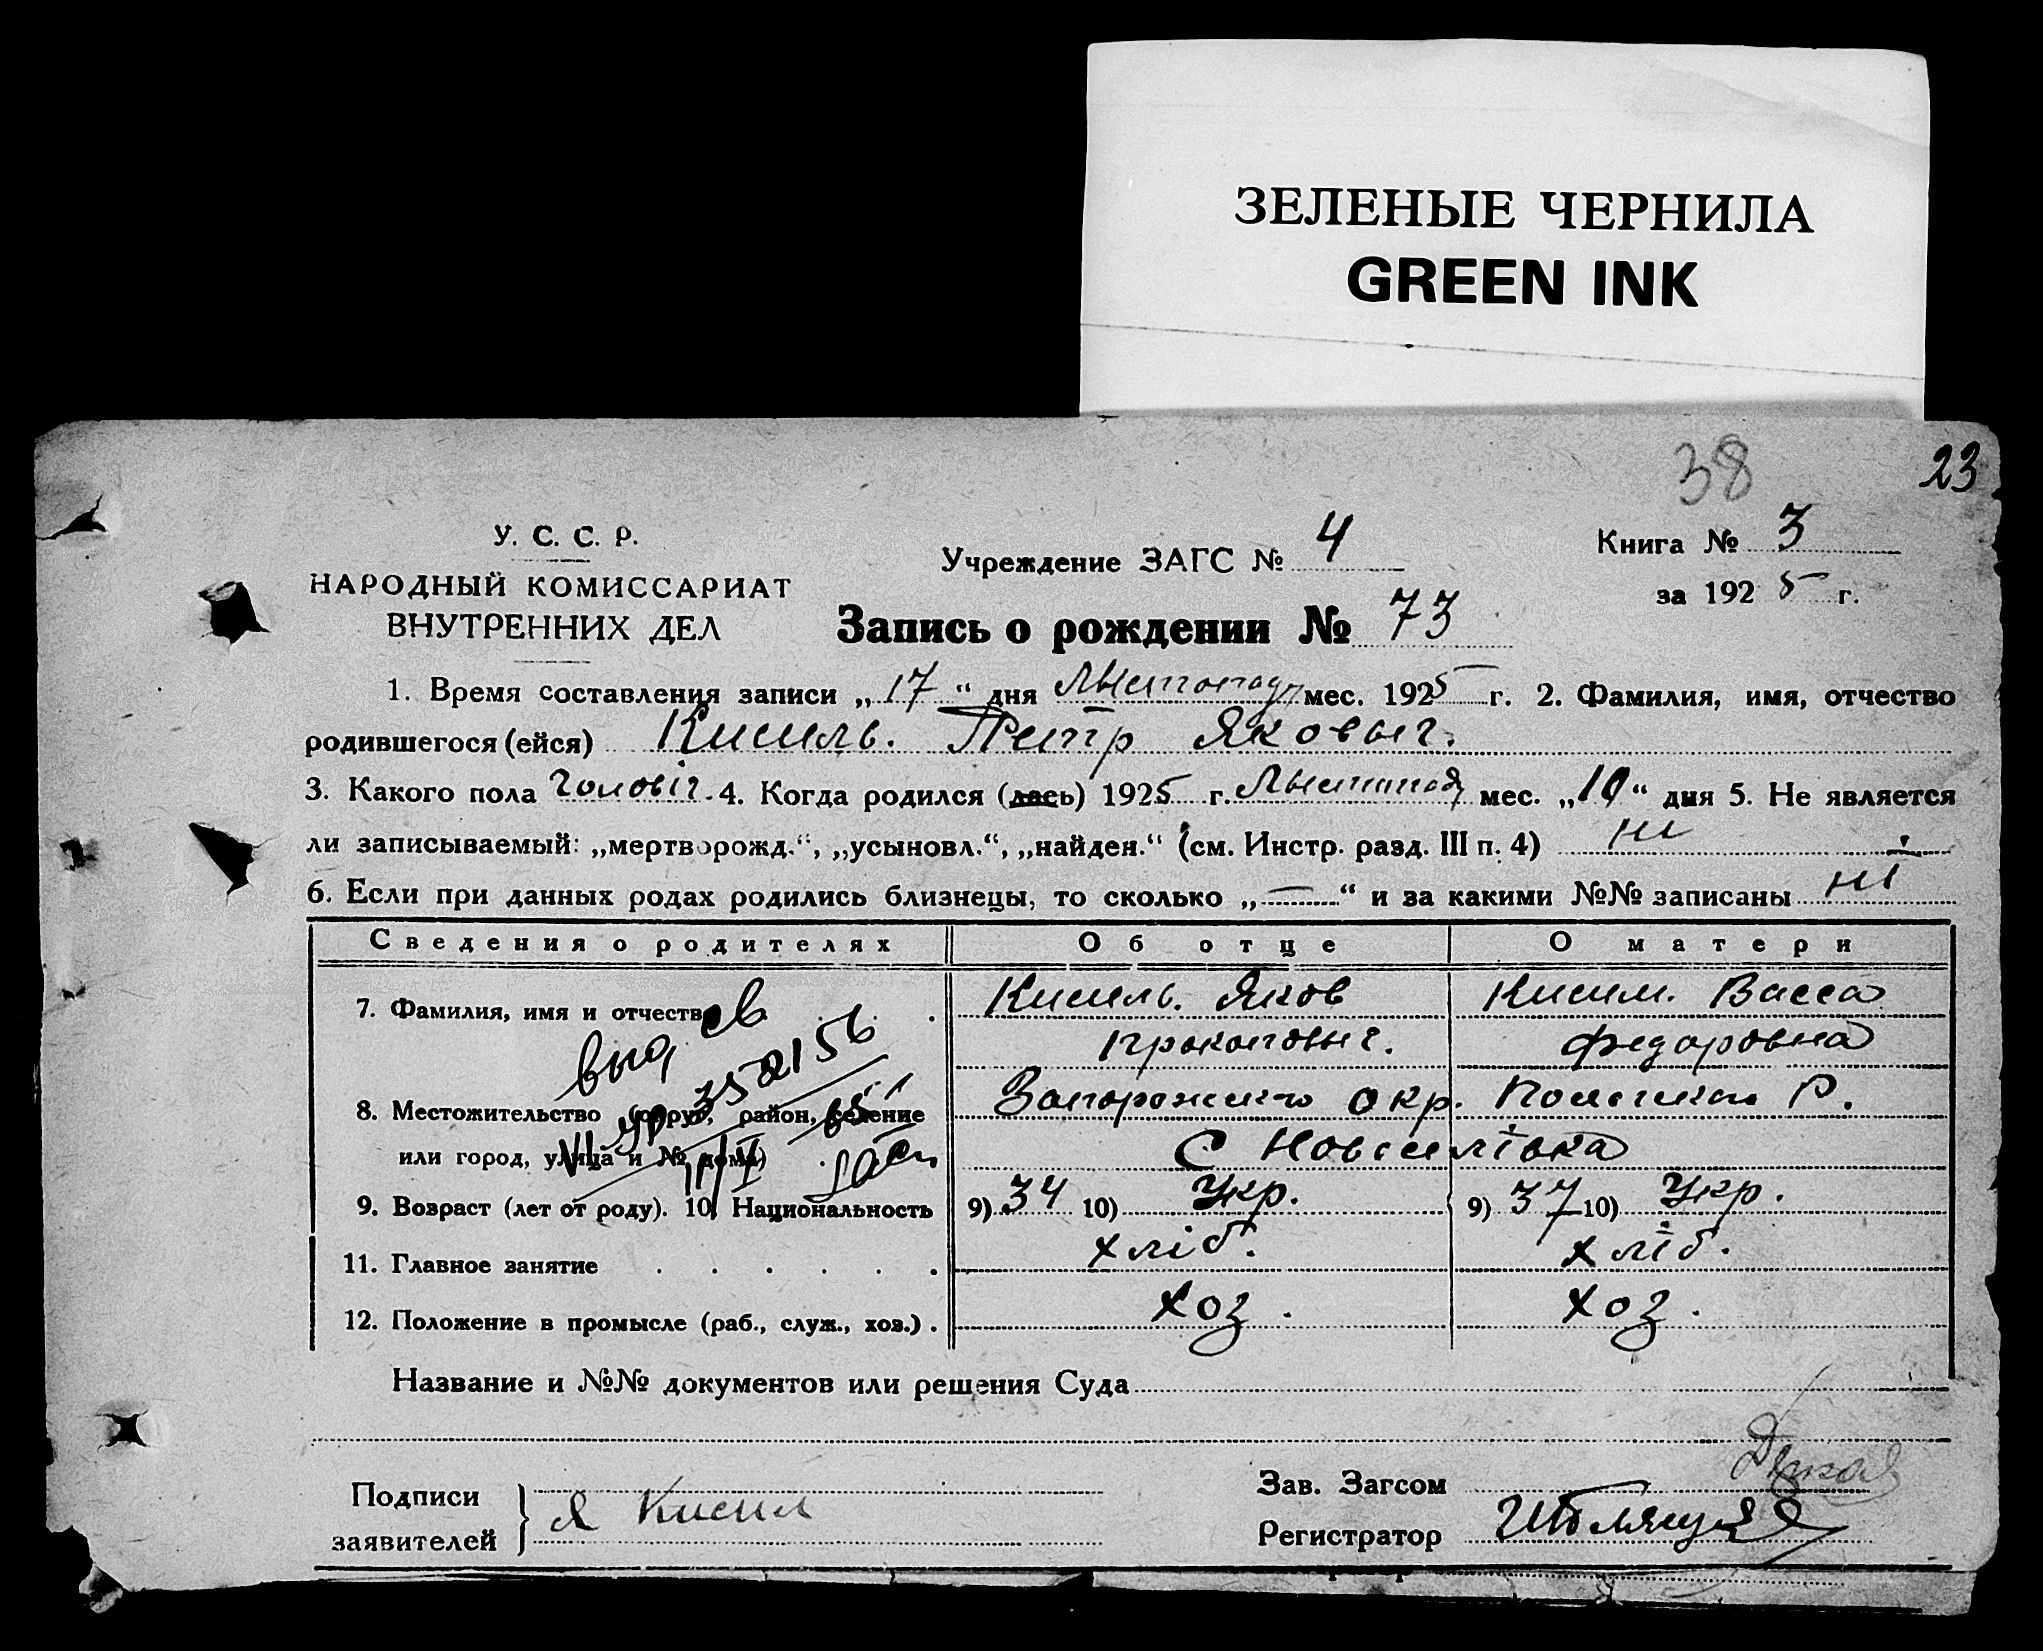 ЗЕЛЕНЫЕ ЧЕРНИЛА
GREEN INK
38
23
У. С. С. Р.
НАРОДНЫЙ КОМИССАРИАТ
ВНУТРЕННИХ ДЕЛ
Учреждение ЗАГС № 4
Книга № 3
за 1925 г.
Запись о рождении № 73
1. Время составления записи „17“ дня Лыстопад мес. 1925 г. 2. Фамилия, имя, отчество
родившегося (ейся) Кисиль. Петр Яковыч.
3. Какого пола Чоловіч. 4. Когда родился (лась) 1925 г. Лыстопад мес. „10“ дня 5. Не является
ли записываемый: „мертворожд.“, „усыновл.“, „найден.“ (см. Инстр. разд. III п. 4) ні
6. Если при данных родах родились близнецы, то сколько „—“ и за какими №№ записаны ні
Сведения о родителях Об отце О матери
7. Фамилия, имя и отчество Кисиль. Яков Кисил. Васса
Прокоповыч. Федоровна
выд св
УР 352156
8. Местожительство (округ, район, селение Запорожского окр. Р.
или город, улица и № дома) С Новоселівка
9. Возраст (лет от роду). 10. Национальность 9) 34 10) Укр. 9) 37 10) Укр.
11. Главное занятие хліб. хліб.
12. Положение в промысле (раб., служ., хоз.) хоз. хоз.
Название и №№ документов или решения Суда
Подписи
заявителей
Я Кисил
Зав. Загсом
Регистратор